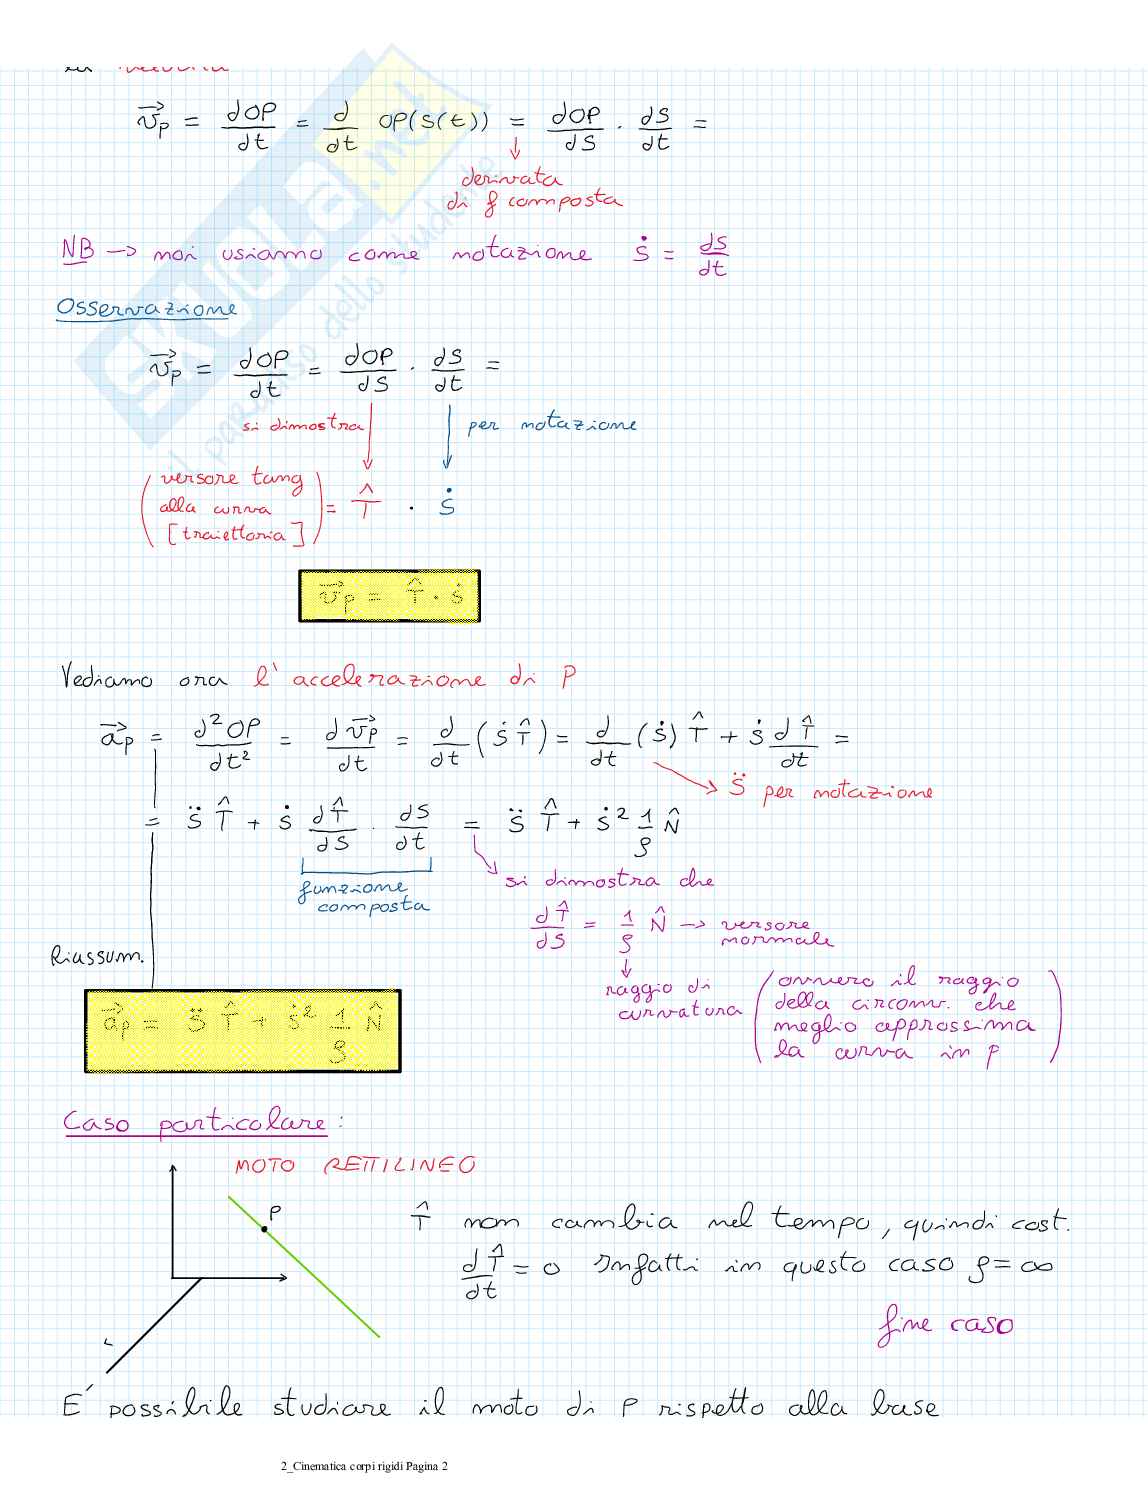 la velocità
v⃗p = dOP/dt = d/dt OP(s(t)) = dOP/ds · ds/dt =
↓
derivata
di f composta
NB → noi usiamo come notazione ṡ = ds/dt
Osservazione
v⃗p = dOP/dt = dOP/ds · ds/dt =
si dimostra
per notazione
(versore tang
alla curva
[traiettoria]) = T̂ · ṡ
v⃗p = T̂ · ṡ
Vediamo ora l'accelerazione di P
a⃗p = d²OP/dt² = dv⃗p/dt = d/dt (ṡ T̂) = d/dt (ṡ) T̂ + ṡ dT̂/dt =
s̈ per notazione
= s̈ T̂ + ṡ dT̂/ds · ds/dt = s̈ T̂ + ṡ² 1/ρ N̂
funzione
composta
si dimostra che
dT̂/ds = 1/ρ N̂ → versore
normale
Riassum.
raggio di
curvatura
(ovvero il raggio
della circonf. che
meglio approssima
la curva in P)
a⃗p = s̈ T̂ + ṡ² 1/ρ N̂
Caso particolare:
MOTO RETTILINEO
P
T̂ non cambia nel tempo, quindi cost.
dT̂/dt = 0 Infatti in questo caso ρ = ∞
fine caso
E' possibile studiare il moto di P rispetto alla base
2_Cinematica corpi rigidi Pagina 2
SKUOLA.net
il paradiso dello studente